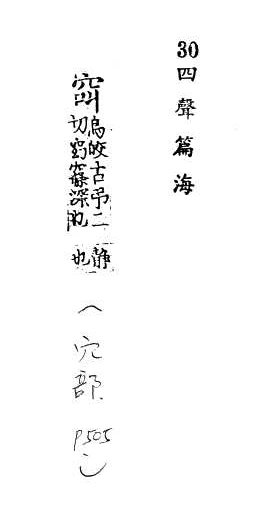 30四聲篇海
䆗
烏皎古弔二
切窈窱深也
靜
也
(穴部
P505)